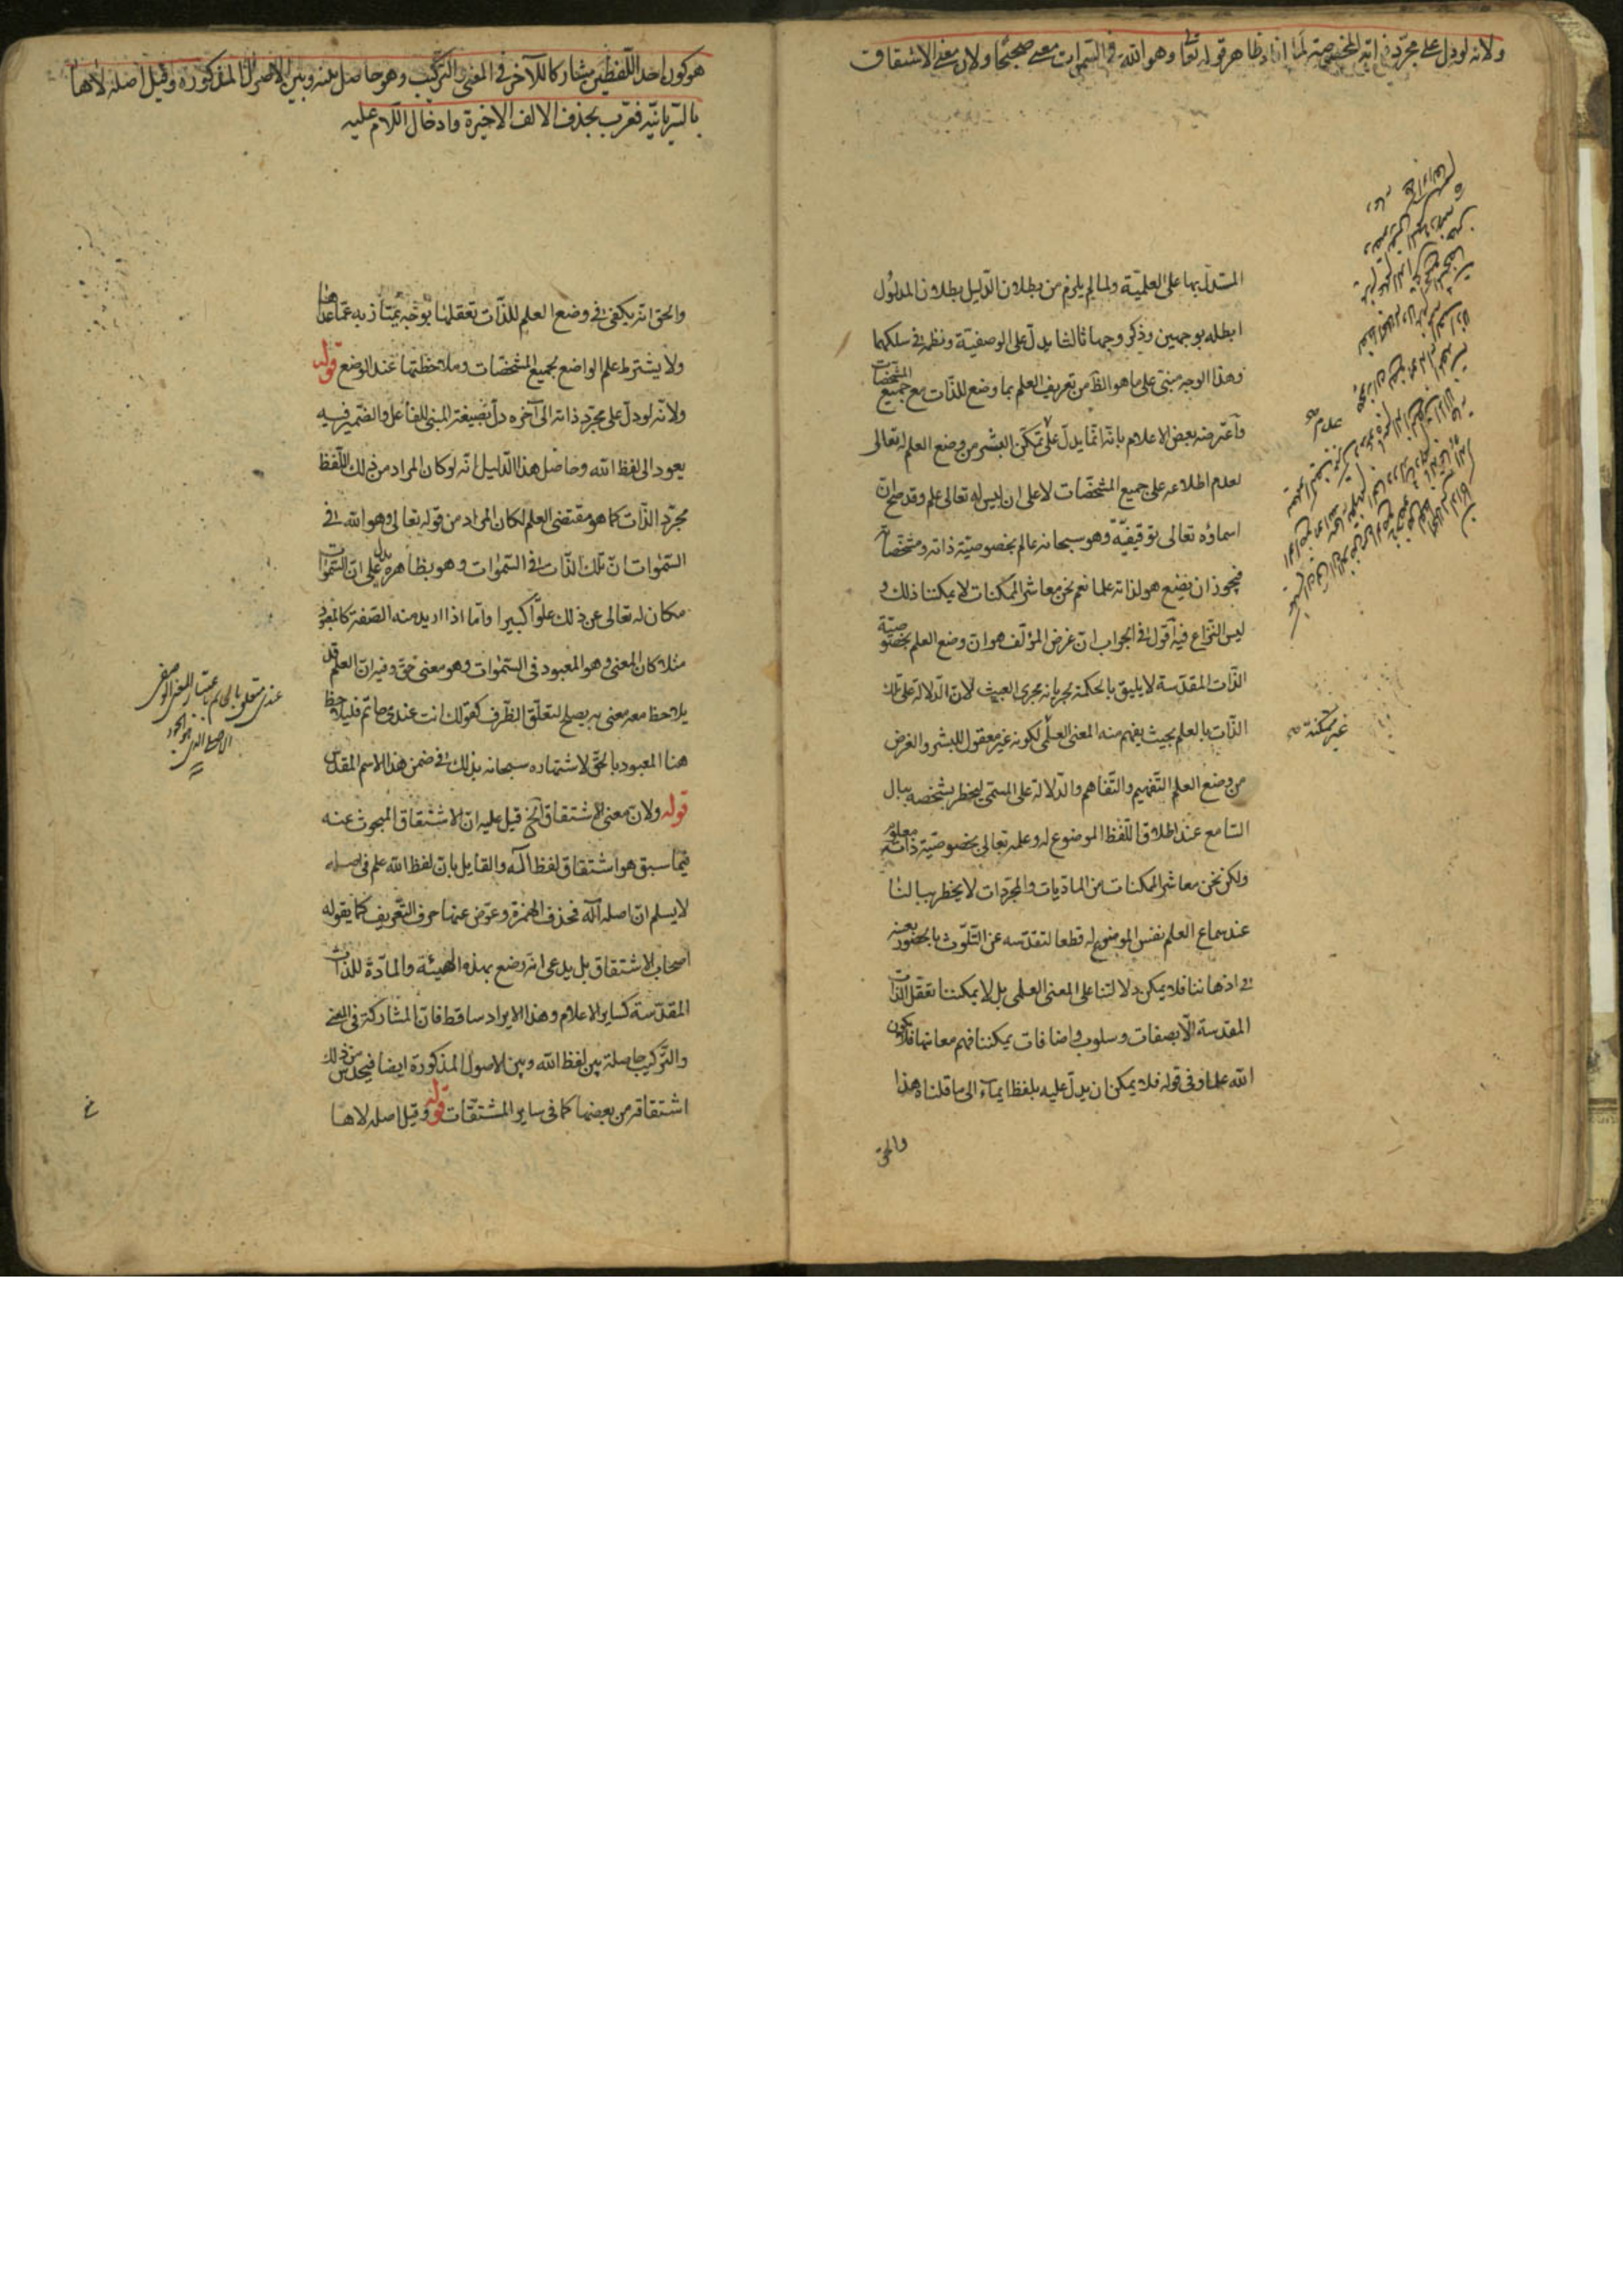 ولانه لو دل على مجرد ذاته المخصوصة لما افاد ظاهر قوله تعا وهو الله في السموات معنى صحيحا ولان معنى الاشتقاق
المستدل بها على العلمية ولما لم يلزم من بطلان الدليل بطلان المدلول
ابطله بوجهين وذكر وجها ثالثا يدل على الوصفية ونظمه في سلكهما
وهذا الوجه مبنى على ما هو الظ من تعريف العلم بما وضع للذات مع جميع المشخصات
واعترضه بعض الاعلام بانه انما يدل على تمكن البشر من وضع العلم له تعالى
لعدم اطلاعه على جميع المشخصات لا على ان ليس له تعالى علم وقد صح ان
اسماؤه تعالى توقيفية وهو سبحانه عالم بخصوصية ذاته ومشخصاته
فيجوز ان يضع هو لذاته علما نعم نحن معاشر الممكنات لا يمكننا ذلك و
ليس النزاع فيه اقول في الجواب ان غرض المؤلف هو ان وضع العلم بخصوصية
الذات المقدسة لا يليق بالحكمة لجريانه مجرى العبث لان الدلالة على تلك
الذات بالعلم بحيث يفهم منه المعنى العلمى لكونه غير معقول للبشر والغرض
من وضع العلم التفهيم والتفاهم والدلالة على المسمى ليخطر بشخصه ببال
السامع عند اطلاق اللفظ الموضوع له وعلمه تعالى بخصوصية ذاته معلوم
ولكن نحن معاشر الممكنات من الماديات والمجردات لا يخطر ببالنا
عند سماع العلم نفس الموضوع له قطعا لتقدسه عن التلوث بالحضور بعينه
في اذهاننا فلا يمكن دلالتنا على المعنى العلمى بل لا يمكننا تعقل الذات
المقدسة الا بصفات وسلوب واضافات يمكننا فهم معانيها فلا يكون
الله علما وفى قوله فلا يمكن ان يدل عليه بلفظ ايماء الى ما قلناه هذا
والحق
غير ممكنة
هو كون احد اللفظين مشاركا للآخر في المعنى والتركيب وهو حاصل بينه وبين الاصول المذكورة وقيل اصله لاها
بالسريانية فعرب بحذف الالف الاخيرة وادخال اللام عليه
والحق انه يكفى في وضع العلم للذات تعقلها بوجه يمتاز به عما عداها
ولا يشترط علم الواضع بجميع المشخصات وملاحظتها عند الوضع قوله
ولانه لو دل على مجرد ذاته الى آخره دل بصيغة المبنى للفاعل والضمير فيه
يعود الى لفظ الله وحاصل هذا الدليل انه لو كان المراد من ذلك اللفظ
مجرد الذات كما هو مقتضى العلم لكان المراد من قوله تعالى وهو الله في
السموات ان تلك الذات في السموات وهو بظاهره يدل على ان السموات
مكان له تعالى عن ذلك علوا كبيرا واما اذا اريد منه الصفة كالمعبود
مثلا كان المعنى وهو المعبود في السموات وهو معنى حق وفيه ان العلم قد
يلاحظ معه معنى به يصلح لتعلق الظرف كقولك انت عندى حاتم فليلاحظ
هنا المعبود بالحق لاشتهاره سبحانه بذلك في ضمن هذا الاسم المقدس
قوله ولان معنى الاشتقاق الخ قيل عليه ان الاشتقاق المبحوث عنه
فيما سبق هو اشتقاق لفظ اله والقايل بان لفظ الله علم في اصله
لا يسلم ان اصله اله فحذف الهمزة وعوض عنها حرف التعريف كما يقوله
اصحاب الاشتقاق بل يدعى انه وضع بهذه الهيئة والمادة للذات
المقدسة كساير الاعلام وهذا الايراد ساقط فان المشاركة في المعنى
والتركيب حاصلة بين لفظ الله وبين الاصول المذكورة ايضا فيحدس من ذلك
اشتقاقه من بعضها كما في ساير المشتقات قوله وقيل اصله لاها
عندى متعلق بالحاتم باعتبار المعنى الوصفى